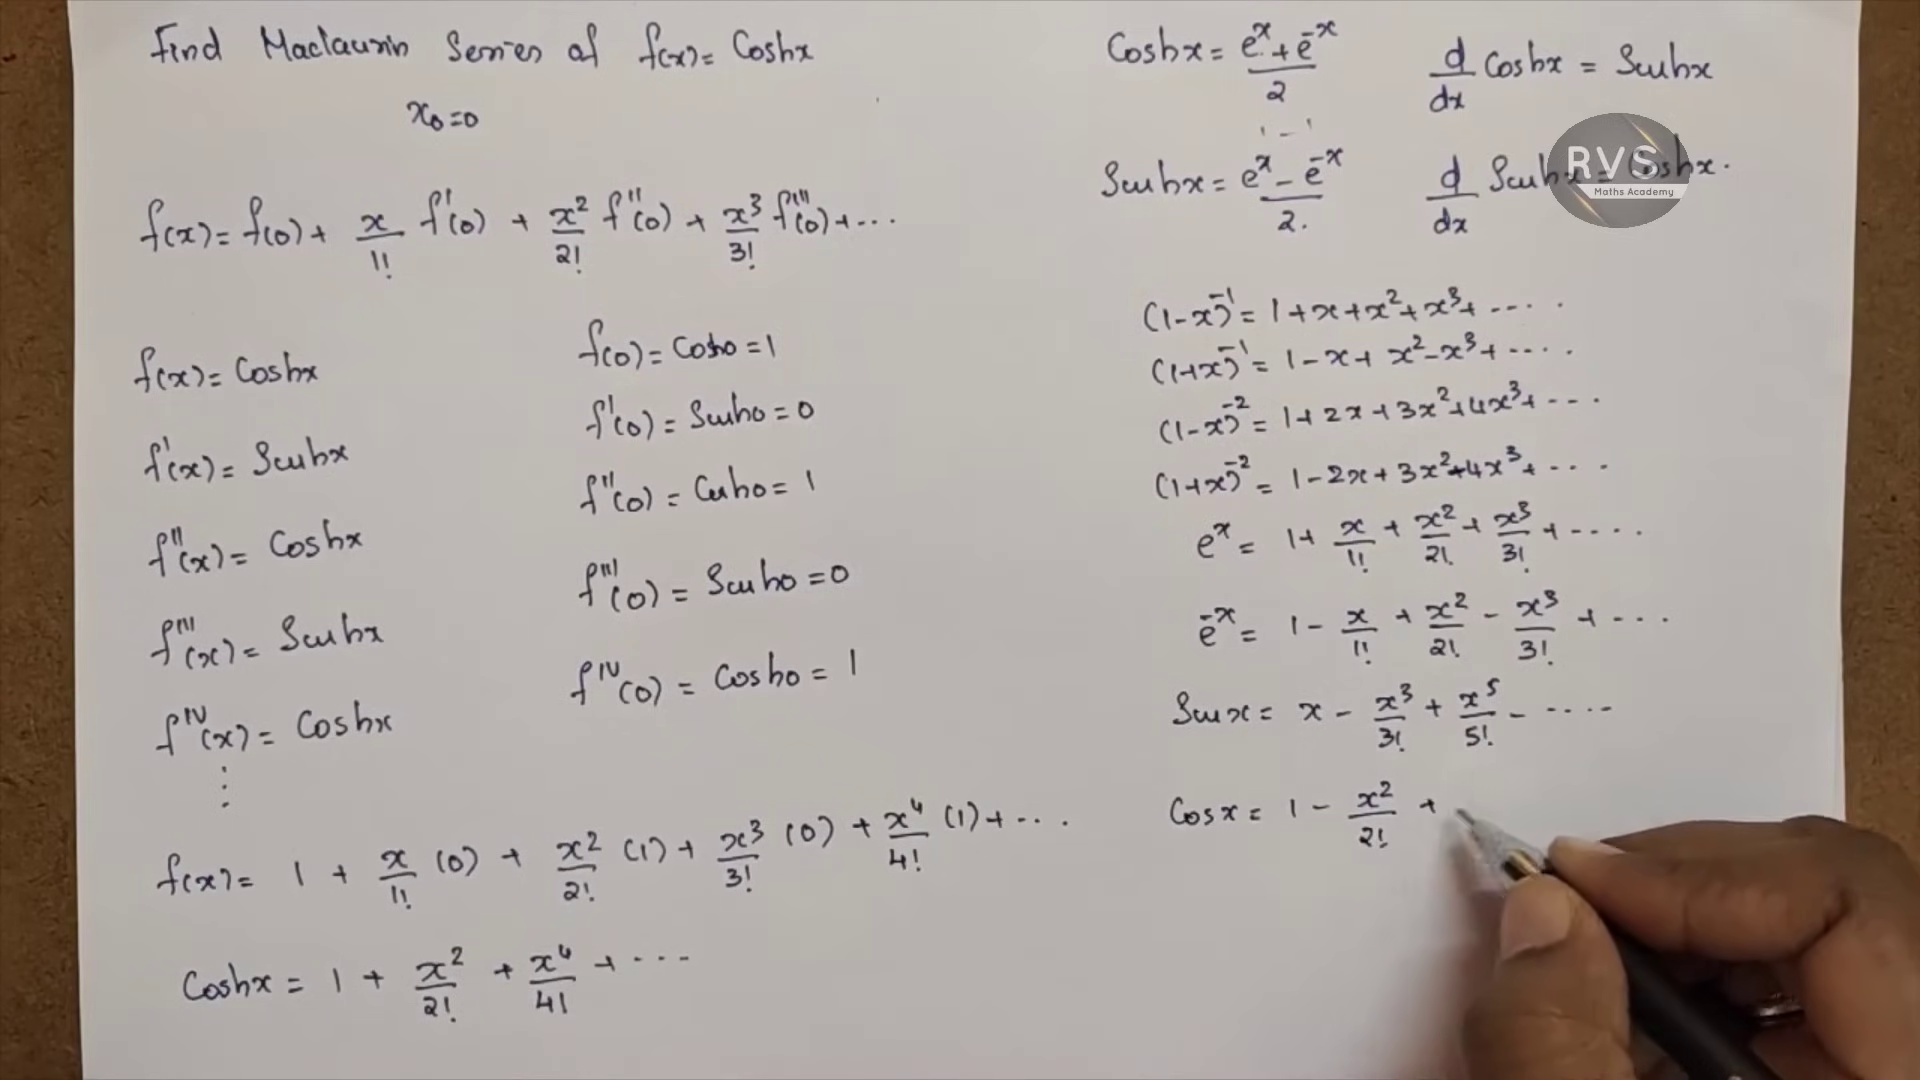 Find Maclaurin Series of f(x) = Coshx
x₀=0
f(x) = f(0) + x/1! f'(0) + x²/2! f''(0) + x³/3! f'''(0) + ...
f(x) = Coshx
f(0) = Cosh0 = 1
f'(x) = Sinhx
f'(0) = Sinh0 = 0
f''(x) = Coshx
f''(0) = Cosh0 = 1
f'''(x) = Sinhx
f'''(0) = Sinh0 = 0
f^IV(x) = Coshx
f^IV(0) = Cosh0 = 1
⋮
f(x) = 1 + x/1! (0) + x²/2! (1) + x³/3! (0) + x⁴/4! (1) + ...
Coshx = 1 + x²/2! + x⁴/4! + ...
Coshx = (e^x + e^-x)/2
d/dx Coshx = Sinhx
Sinhx = (e^x - e^-x)/2.
d/dx Sinhx = Coshx.
RVS
Maths Academy
(1-x)^-1 = 1+x+x²+x³+ ....
(1+x)^-1 = 1-x+x²-x³+ ....
(1-x)^-2 = 1+2x+3x²+4x³+ ...
(1+x)^-2 = 1-2x+3x²-4x³+ ...
e^x = 1+ x/1! + x²/2! + x³/3! + ....
e^-x = 1- x/1! + x²/2! - x³/3! + ...
Sinx = x - x³/3! + x⁵/5! - ....
Cosx = 1 - x²/2! +